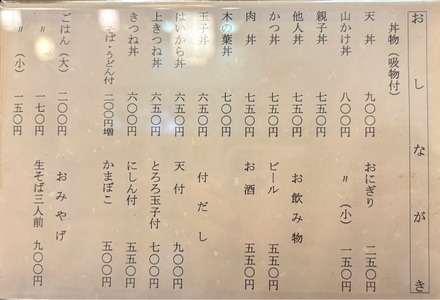 おしながき
丼物（吸物付）
天丼　九〇〇円
山かけ丼　八〇〇円
親子丼　七五〇円
他人丼　七五〇円
かつ丼　七五〇円
肉丼　七〇〇円
木の葉丼　七〇〇円
玉子丼　六五〇円
はいから丼　六五〇円
上きつね丼　六五〇円
きつね丼　六〇〇円
そば・うどん付　二〇〇円増
ごはん（大）　二〇〇円
〃　一七〇円
〃（小）　一五〇円
おにぎり　二五〇円
〃（小）　一五〇円
お飲み物
ビール　五五〇円
お酒　五五〇円
付だし
天付　九〇〇円
とろろ玉子付　七〇〇円
にしん付　五五〇円
かまぼこ　五〇〇円
おみやげ
生そば三人前　九〇〇円